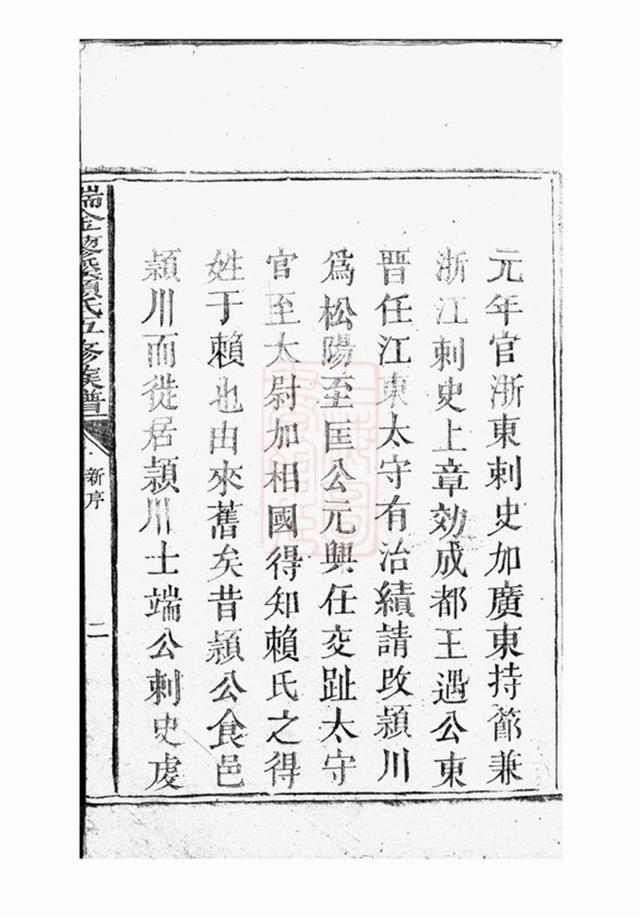 元年官浙東刺史加廣東持節兼
浙江刺史上章効成都王遇公東
晋任江東太守有治績請改頴川
爲松陽至匡公元興任交趾太守
官至太尉加相國得知賴氏之得
姓于賴也由來舊矣昔頴公食邑
頴川而徙居頴川士端公刺史虔
瑞金廖溪賴氏五修族譜
新序
二